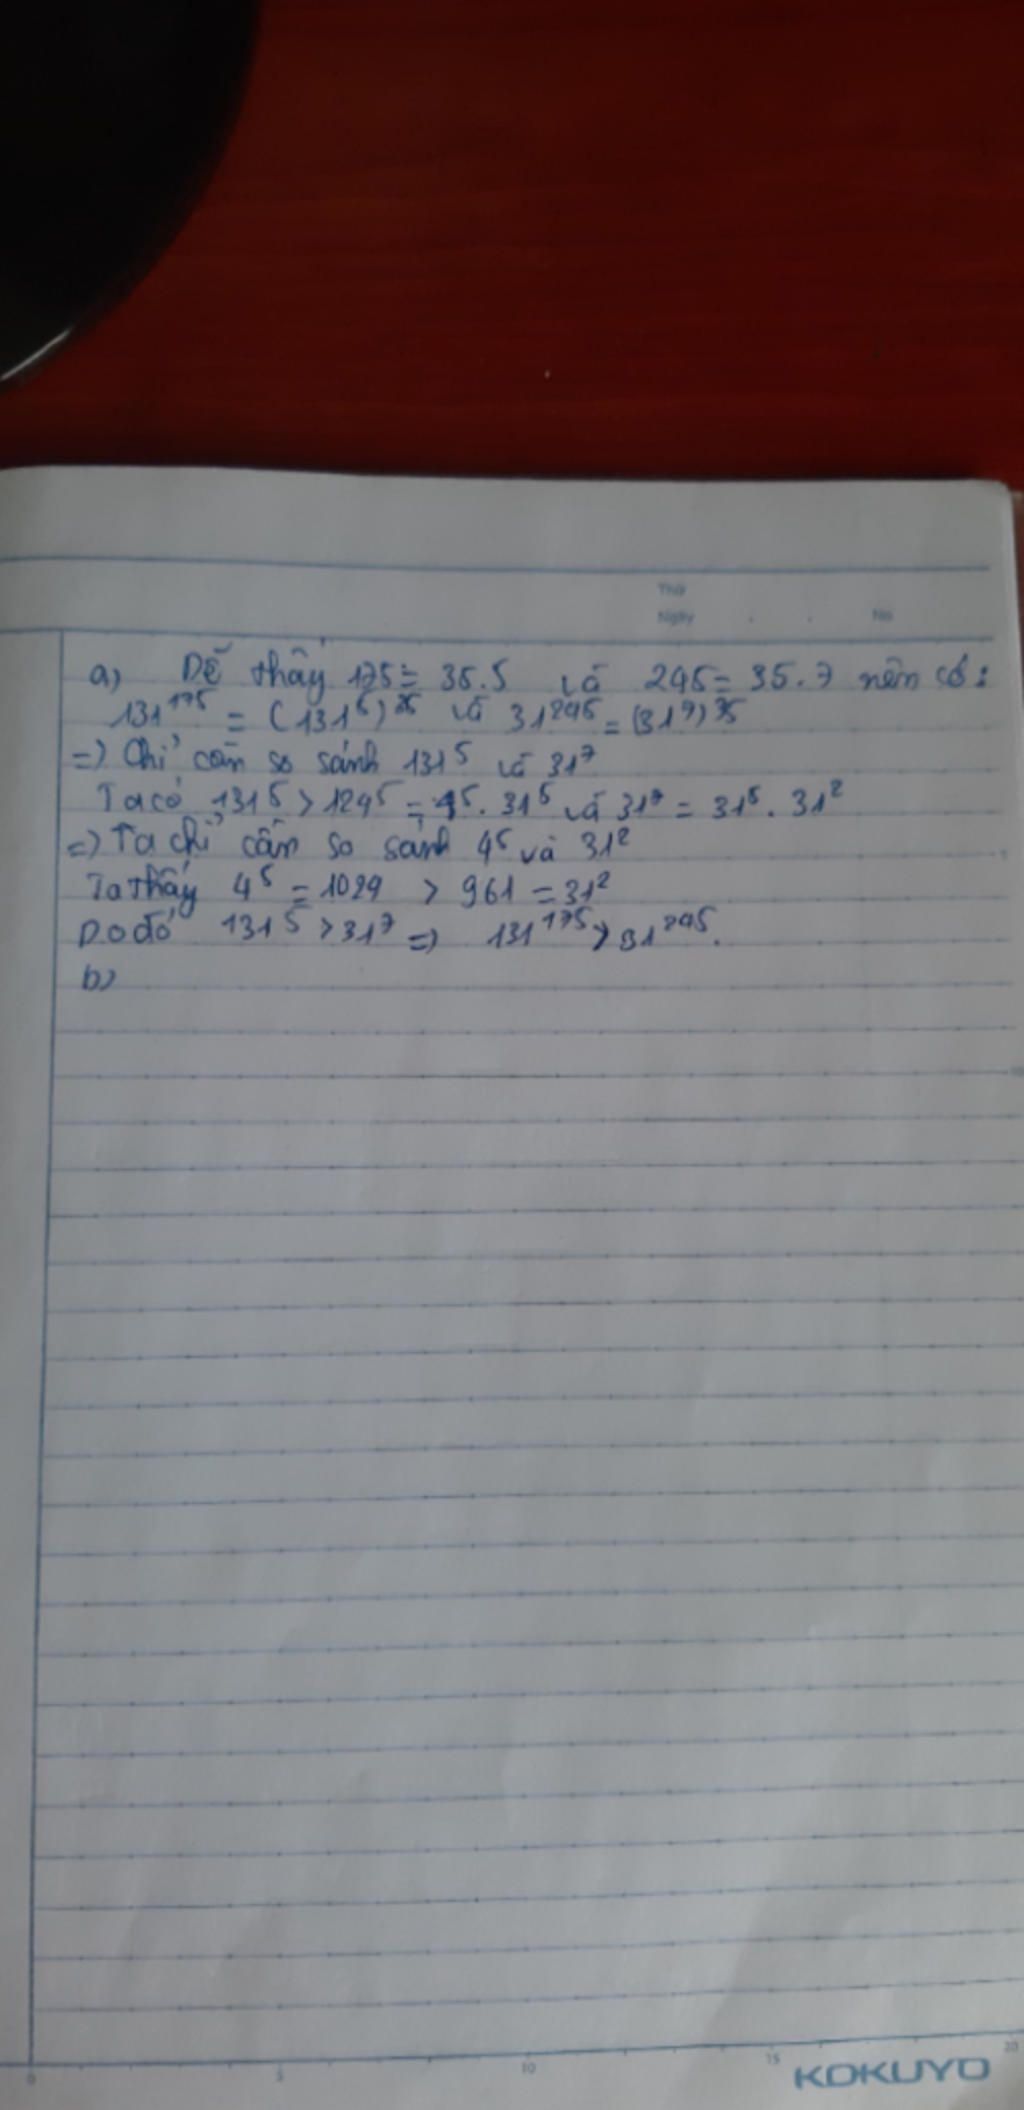 Thứ
Ngày . . No
a) Dễ thấy 175 = 35.5 và 245 = 35.7 nên có:
131^175 = (131^5)^35 và 31^245 = (31^7)^35
=) Chỉ cần so sánh 131^5 và 31^7
Ta có 131^5 > 124^5 = 4^5 . 31^5 và 31^7 = 31^5 . 31^2
=) Ta chỉ cần so sánh 4^5 và 31^2
Ta thấy 4^5 = 1024 > 961 = 31^2
Do đó 131^5 > 31^7 =) 131^175 > 31^245.
b)
0 5 10 15 20
KOKUYO